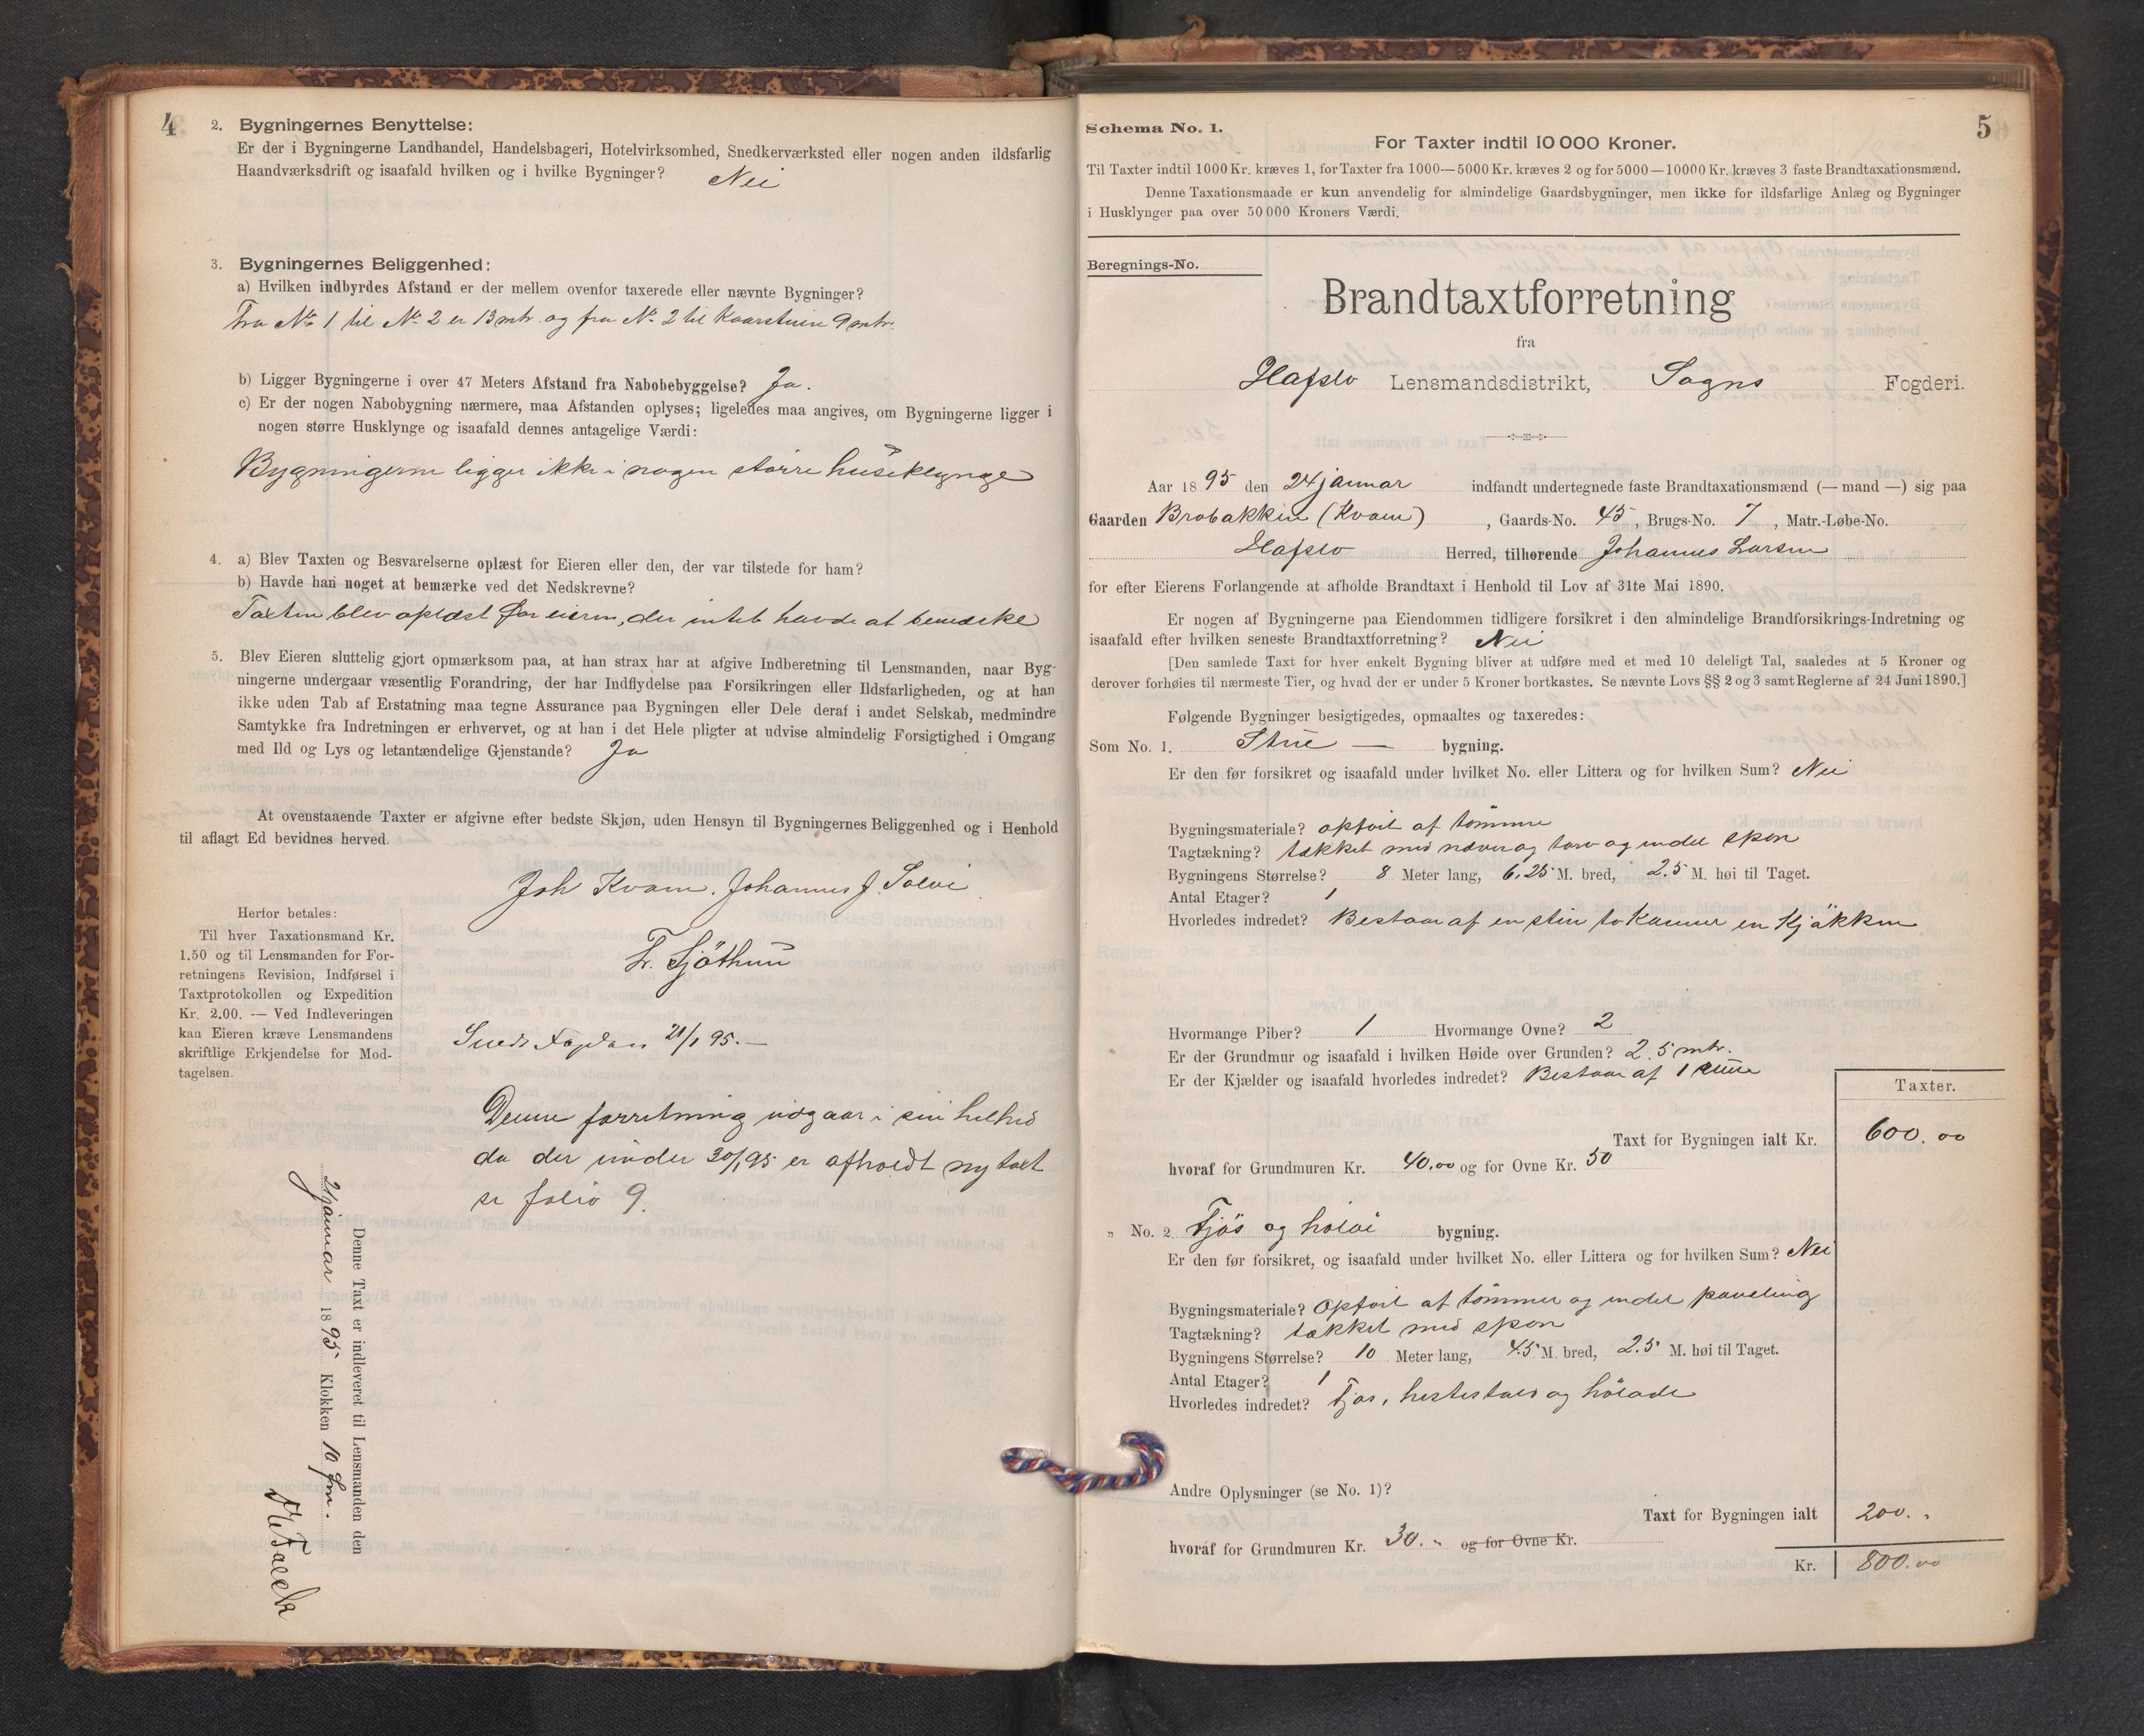 4
2. Bygningernes Benyttelse:
Er der i Bygningerne Landhandel, Handelsbageri, Hotelvirksomhed, Snedkerværksted eller nogen anden ildsfarlig
Haandværksdrift og isaafald hvilken og i hvilke Bygninger? Nei
3. Bygningernes Beliggenhed:
a) Hvilken indbyrdes Afstand er der mellem ovenfor taxerede eller nævnte Bygninger?
Fra No 1 til No 2 er 13 mtr. og fra No 2 til Kvarstuen 9 mtr.
b) Ligger Bygningerne i over 47 Meters Afstand fra Nabobebyggelse? Ja.
c) Er der nogen Nabobygning nærmere, maa Afstanden oplyses; ligeledes maa angives, om Bygningerne ligger i
nogen større Husklynge og isaafald dennes antagelige Værdi:
Bygningerne ligger ikke i nogen større husklynge
4. a) Blev Taxten og Besvarelserne oplæst for Eieren eller den, der var tilstede for ham?
b) Havde han noget at bemærke ved det Nedskrevne?
Taxten blev oplæst for eieren, der intet havde at bemærke
5. Blev Eieren sluttelig gjort opmærksom paa, at han strax har at afgive Indberetning til Lensmanden, naar Byg-
ningerne undergaar væsentlig Forandring, der har Indflydelse paa Forsikringen eller Ildsfarligheden, og at han
ikke uden Tab af Erstatning maa tegne Assurance paa Bygningen eller Dele deraf i andet Selskab, medmindre
Samtykke fra Indretningen er erhvervet, og at han i det Hele pligter at udvise almindelig Forsigtighed i Omgang
med Ild og Lys og letantændelige Gjenstande? Ja
At ovenstaaende Taxter er afgivne efter bedste Skjøn, uden Hensyn til Bygningernes Beliggenhed og i Henhold
til aflagt Ed bevidnes herved.
Joh Kvam. Johannes J. Solvi
Herfor betales:
Til hver Taxationsmand Kr.
1.50 og til Lensmanden for For-
retningens Revision, Indførsel i
Taxtprotokollen og Expedition
Kr. 2.00. — Ved Indleveringen
kan Eieren kræve Lensmandens
skriftlige Erkjendelse for Mod-
tagelsen.
21/1 95. —
Denne forretning udgaar i sin helhed
da der under 30/1 95 er afholdt ny taxt
se folio 9.
Denne Taxt er indleveret til Lensmanden den
21 januar 1895 Klokken 10 fm.
5
Schema No. 1.
For Taxter indtil 10 000 Kroner.
Til Taxter indtil 1000 Kr. kræves 1, for Taxter fra 1000—5000 Kr. kræves 2 og for 5000—10000 Kr. kræves 3 faste Brandtaxationsmænd.
Denne Taxationsmaade er kun anvendelig for almindelige Gaardsbygninger, men ikke for ildsfarlige Anlæg og Bygninger
i Husklynger paa over 50 000 Kroners Værdi.
Beregnings-No.
Brandtaxtforretning
fra
Hafslo Lensmandsdistrikt, Sogns Fogderi.
Aar 1895 den 24 januar indfandt undertegnede faste Brandtaxationsmænd (— mand —) sig paa
Gaarden Brobakken (Kvam), Gaards-No. 45, Brugs-No. 7, Matr.-Løbe-No.
Hafslo Herred, tilhørende Johannes Larsen
for efter Eierens Forlangende at afholde Brandtaxt i Henhold til Lov af 31te Mai 1890.
Er nogen af Bygningerne paa Eiendommen tidligere forsikret i den almindelige Brandforsikrings-Indretning og
isaafald efter hvilken seneste Brandtaxtforretning? Nei
[Den samlede Taxt for hver enkelt Bygning bliver at udføre med et med 10 deleligt Tal, saaledes at 5 Kroner og
derover forhøies til nærmeste Tier, og hvad der er under 5 Kroner bortkastes. Se nævnte Lovs §§ 2 og 3 samt Reglerne af 24 Juni 1890.]
Følgende Bygninger besigtigedes, opmaaltes og taxeredes:
Som No. 1. Stue — bygning.
Er den før forsikret og isaafald under hvilket No. eller Littera og for hvilken Sum? Nei
Bygningsmateriale? opført af tømmer
Tagtækning? tækket med næver og torv og endel spon
Bygningens Størrelse? 8 Meter lang, 6,25 M. bred, 2.5 M. høi til Taget.
Antal Etager? 1
Hvorledes indredet? Bestaar af en stue to kamre en kjøkken
Hvormange Piber? 1 Hvormange Ovne? 2
Er der Grundmur og isaafald i hvilken Høide over Grunden? 2.5 mtr.
Er der Kjælder og isaafald hvorledes indredet? Bestaar af 1 rum
Taxter.
Taxt for Bygningen ialt Kr. 600.00
hvoraf for Grundmuren Kr. 40.00 og for Ovne Kr. 50
„ No. 2. Fjøs og høloe bygning.
Er den før forsikret, og isaafald under hvilket No. eller Littera og for hvilken Sum? Nei
Bygningsmateriale? opført af tømmer og endel paneling
Tagtækning? tækket med spon
Bygningens Størrelse? 10 Meter lang, 4.5 M. bred, 2.5 M. høi til Taget.
Antal Etager? 1
Hvorledes indredet? Fjøs, hestestald og hølade
Andre Oplysninger (se No. 1)?
Taxt for Bygningen ialt 200. „
hvoraf for Grundmuren Kr. 30. „ og for Ovne Kr.
Kr. 800.00